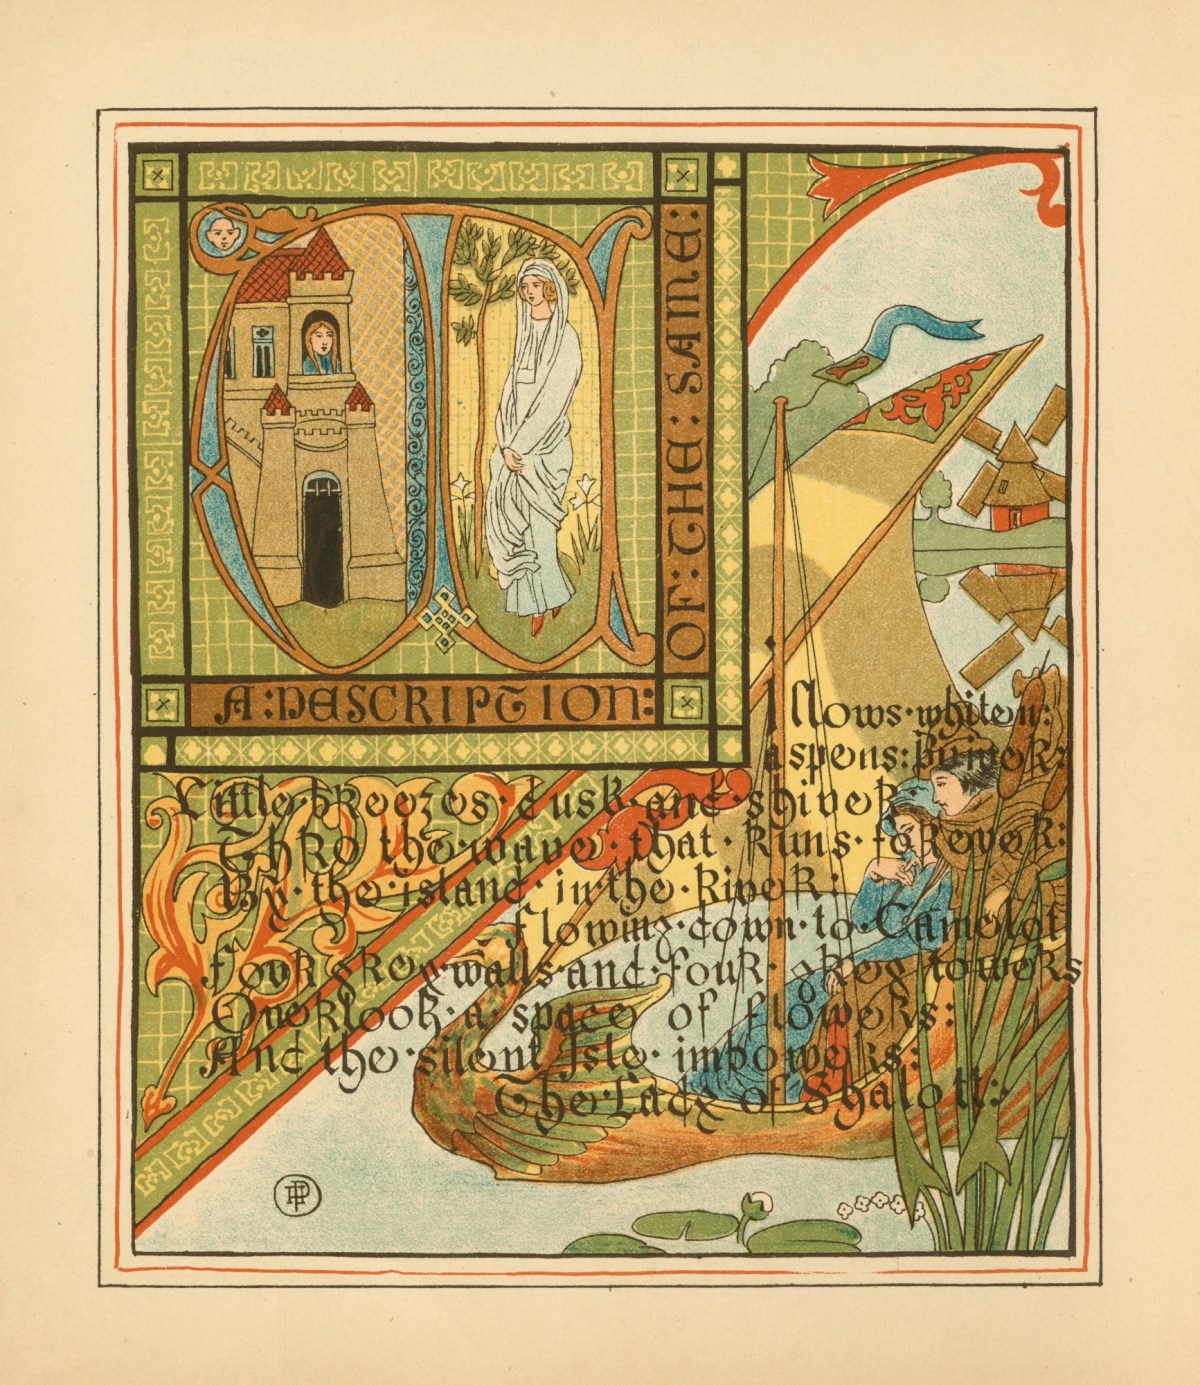 A:DESCRIPTION:
OF:THE:SAME:
Willows·whiten:
aspens:quiver:
Little·breezes·dusk·and·shiver
Thro the·wave·that·runs·forever:
By·the·island·in·the·River:
flowing·down·to·Camelot
four grey walls·and·four·grey towers
Overlook·a·space of flowers:
And the·silent Isle·imbowers:
The·Lady of Shalott:
HP